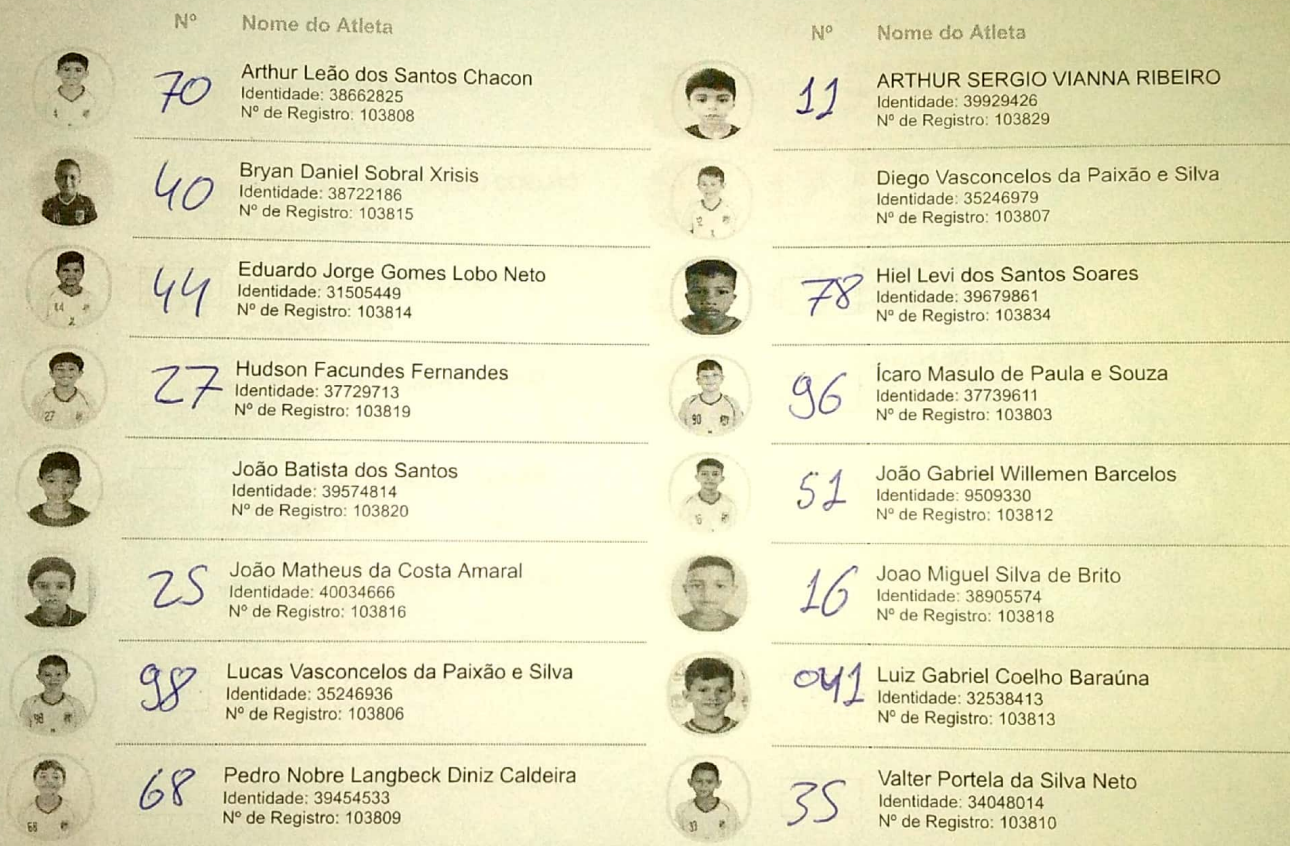 Nº Nome do Atleta
70 Arthur Leão dos Santos Chacon
Identidade: 38662825
Nº de Registro: 103808
40 Bryan Daniel Sobral Xrisis
Identidade: 38722186
Nº de Registro: 103815
44 Eduardo Jorge Gomes Lobo Neto
Identidade: 31505449
Nº de Registro: 103814
27 Hudson Facundes Fernandes
Identidade: 37729713
Nº de Registro: 103819
João Batista dos Santos
Identidade: 39574814
Nº de Registro: 103820
25 João Matheus da Costa Amaral
Identidade: 40034666
Nº de Registro: 103816
98 Lucas Vasconcelos da Paixão e Silva
Identidade: 35246936
Nº de Registro: 103806
68 Pedro Nobre Langbeck Diniz Caldeira
Identidade: 39454533
Nº de Registro: 103809
Nº Nome do Atleta
11 ARTHUR SERGIO VIANNA RIBEIRO
Identidade: 39929426
Nº de Registro: 103829
Diego Vasconcelos da Paixão e Silva
Identidade: 35246979
Nº de Registro: 103807
78 Hiel Levi dos Santos Soares
Identidade: 39679861
Nº de Registro: 103834
96 Ícaro Masulo de Paula e Souza
Identidade: 37739611
Nº de Registro: 103803
51 João Gabriel Willemen Barcelos
Identidade: 9509330
Nº de Registro: 103812
16 Joao Miguel Silva de Brito
Identidade: 38905574
Nº de Registro: 103818
041 Luiz Gabriel Coelho Baraúna
Identidade: 32538413
Nº de Registro: 103813
35 Valter Portela da Silva Neto
Identidade: 34048014
Nº de Registro: 103810